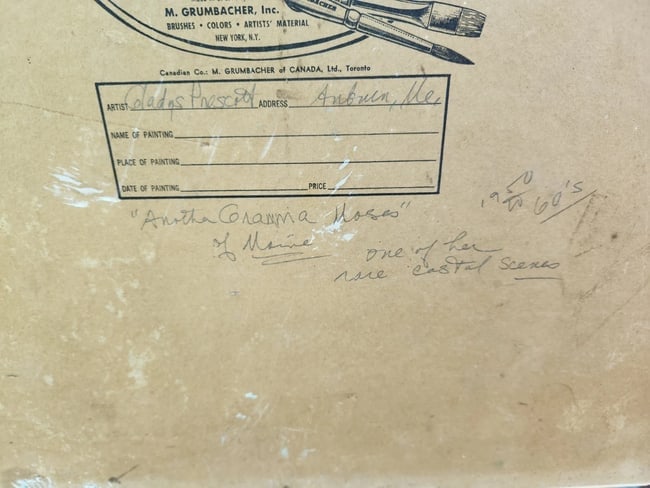 M. GRUMBACHER, Inc.
BRUSHES • COLORS • ARTISTS' MATERIAL
NEW YORK, N.Y.
Canadian Co.: M. GRUMBACHER of CANADA, Ltd., Toronto
ARTIST Gladys Prescott ADDRESS Auburn, Me.
NAME OF PAINTING
PLACE OF PAINTING
DATE OF PAINTING PRICE
"Another Granma Moses"
of Maine
1950 to 60's
one of her
rare costal scenes